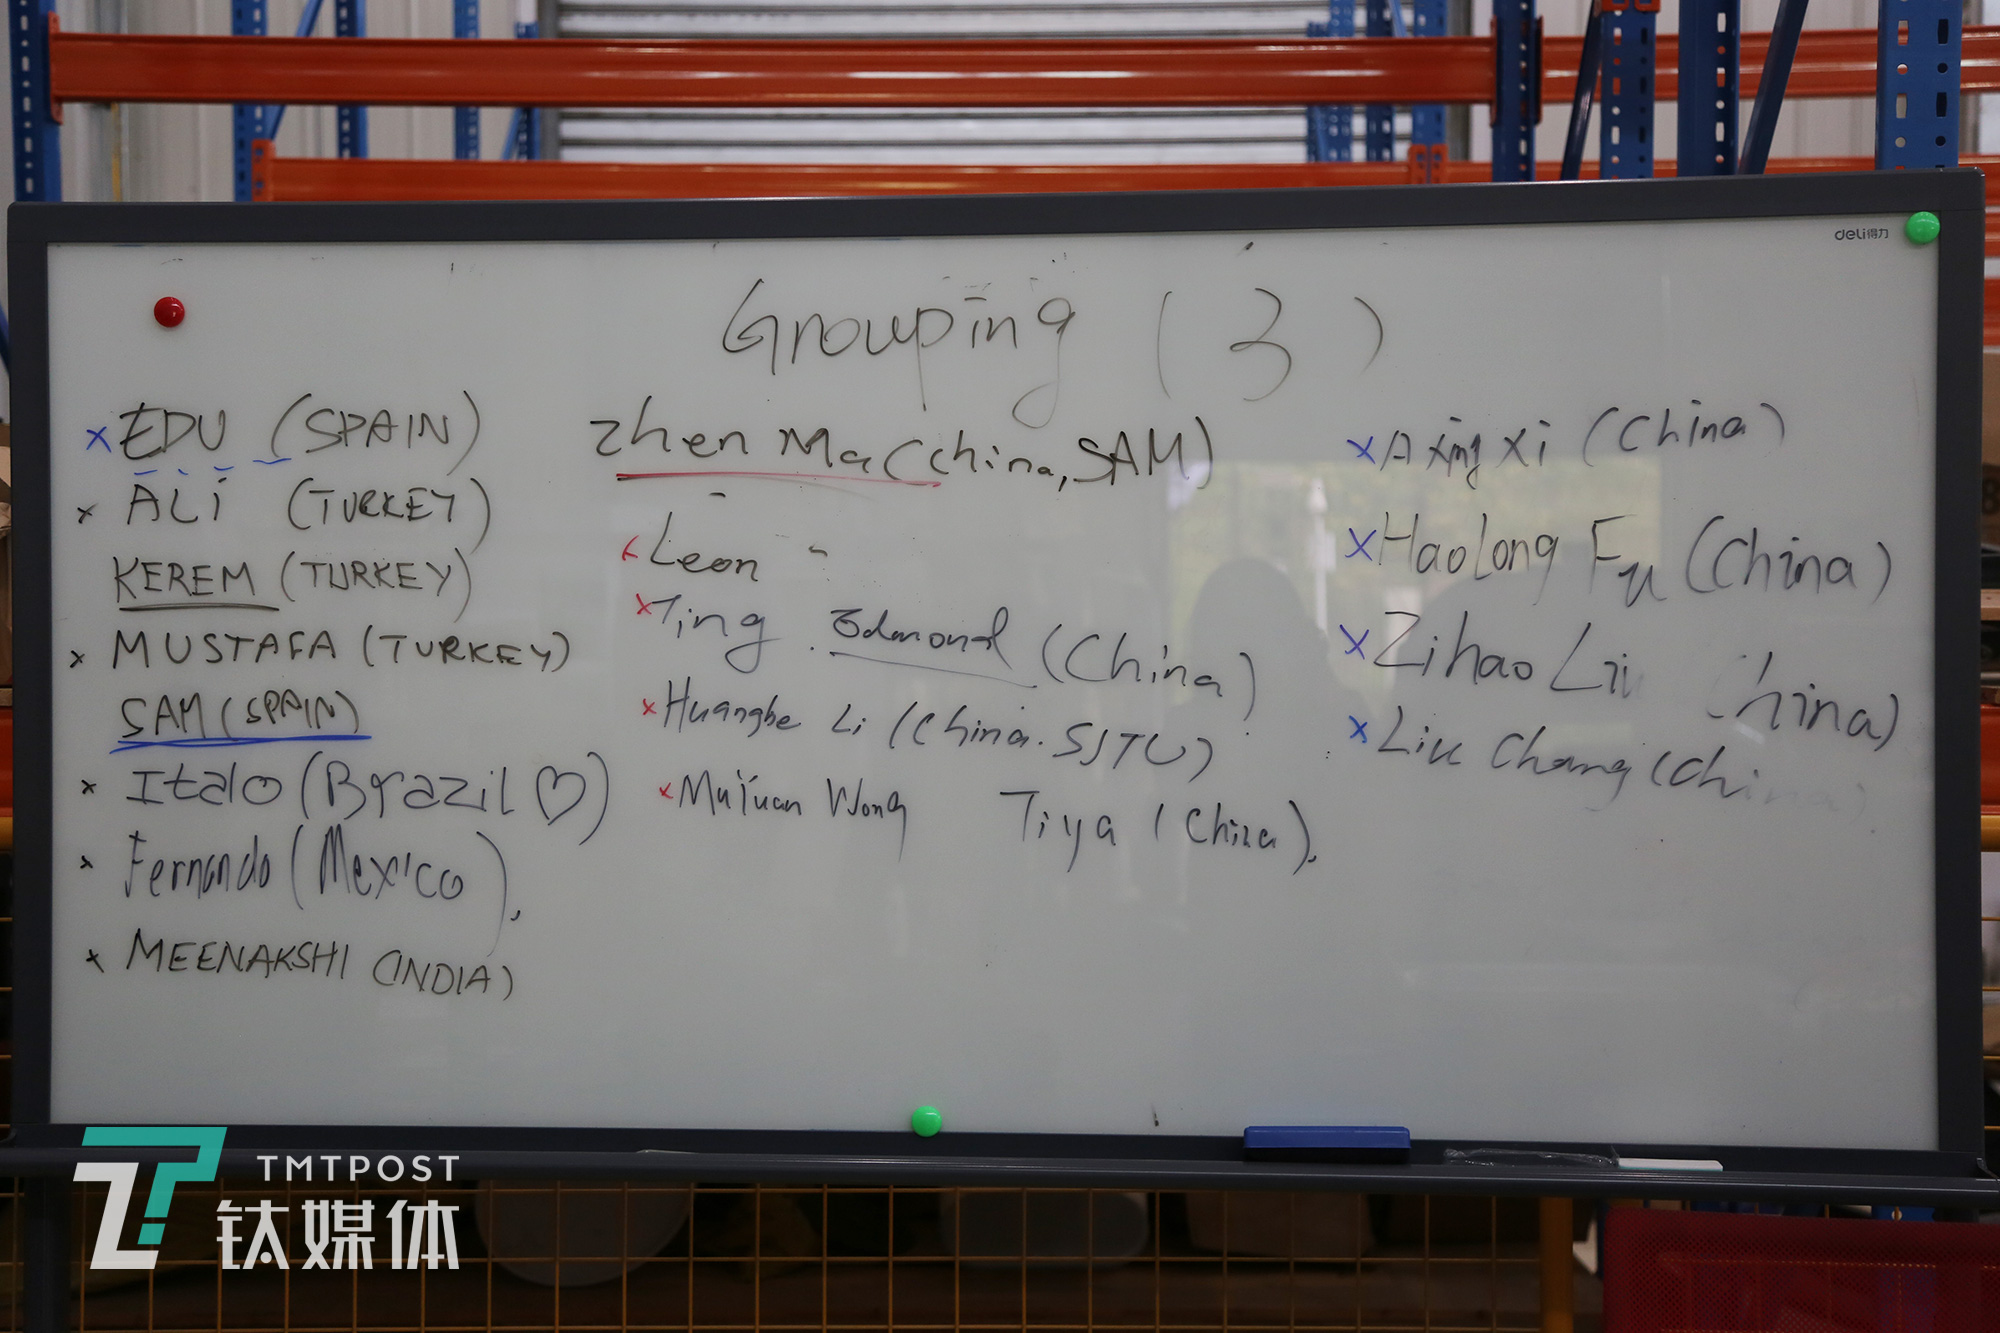 deli得力
Grouping (3)
× EDU (SPAIN)
× ALI (TURKEY)
KEREM (TURKEY)
× MUSTAFA (TURKEY)
SAM (SPAIN)
× Italo (Brazil ♡)
× Fernando (Mexico),
× MEENAKSHI (INDIA)
Zhen Ma (China, SAM)
Leon
× Ting . Edmond (China)
× Huangbe Li (China. SJTU)
× Muyuan Wong
Tiya (China),
× A xing xi (China)
× Haolong Fu (China)
× Zihao Liu China)
× Liu Chang (China)
TMTPOST
钛媒体